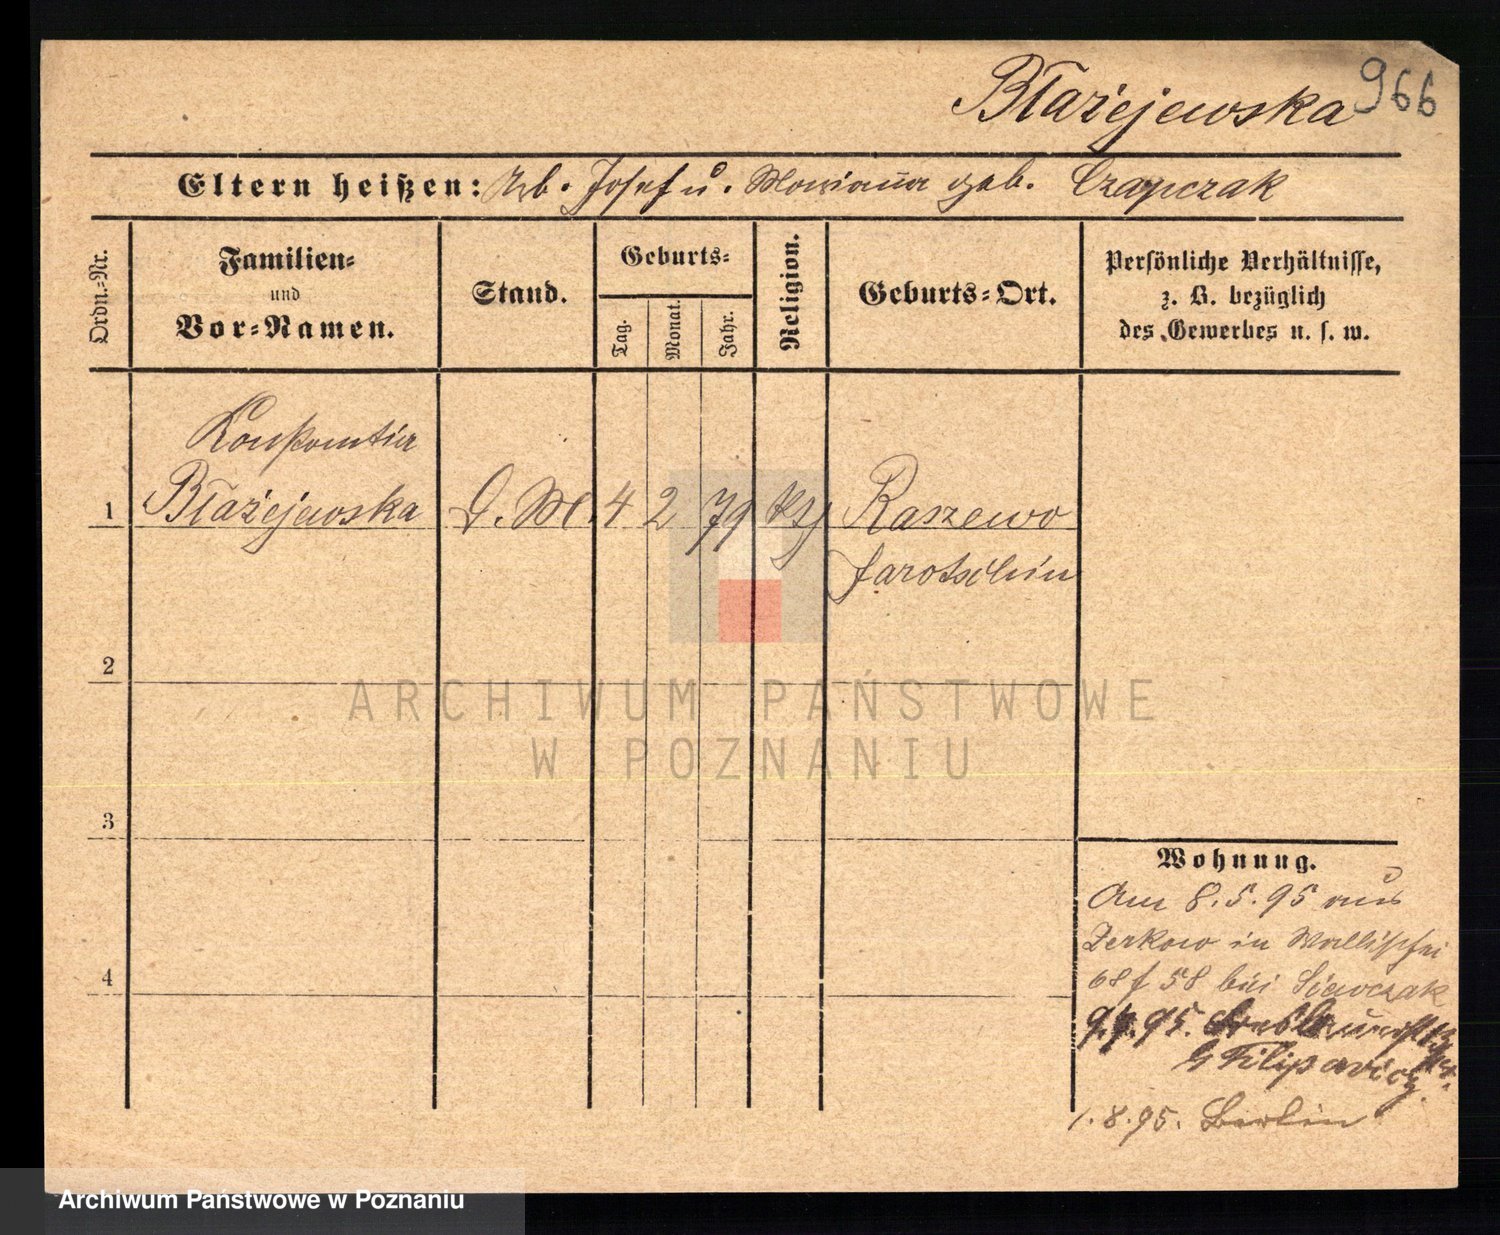 Błażejewska 966
Eltern heißen: Arb. Josef u. Marianna geb. Czapczak
Ordn.-Nr.
Familien-
und
Vor-Namen.
Stand.
Geburts-
Tag.
Monat.
Jahr.
Religion.
Geburts-Ort.
Persönliche Verhältnisse,
z. B. bezüglich
des Gewerbes u. s. w.
Błażejewska
1 D. M. 4 2 79 Raszewo
Jarotschin
2
3
4
Wohnung.
Am 8.5.95 aus
Zerkow in Wallischei
68/58 bei
9.7.95.
1.8.95. Berlin
ARCHIWUM PAŃSTWOWE
W POZNANIU
Archiwum Państwowe w Poznaniu